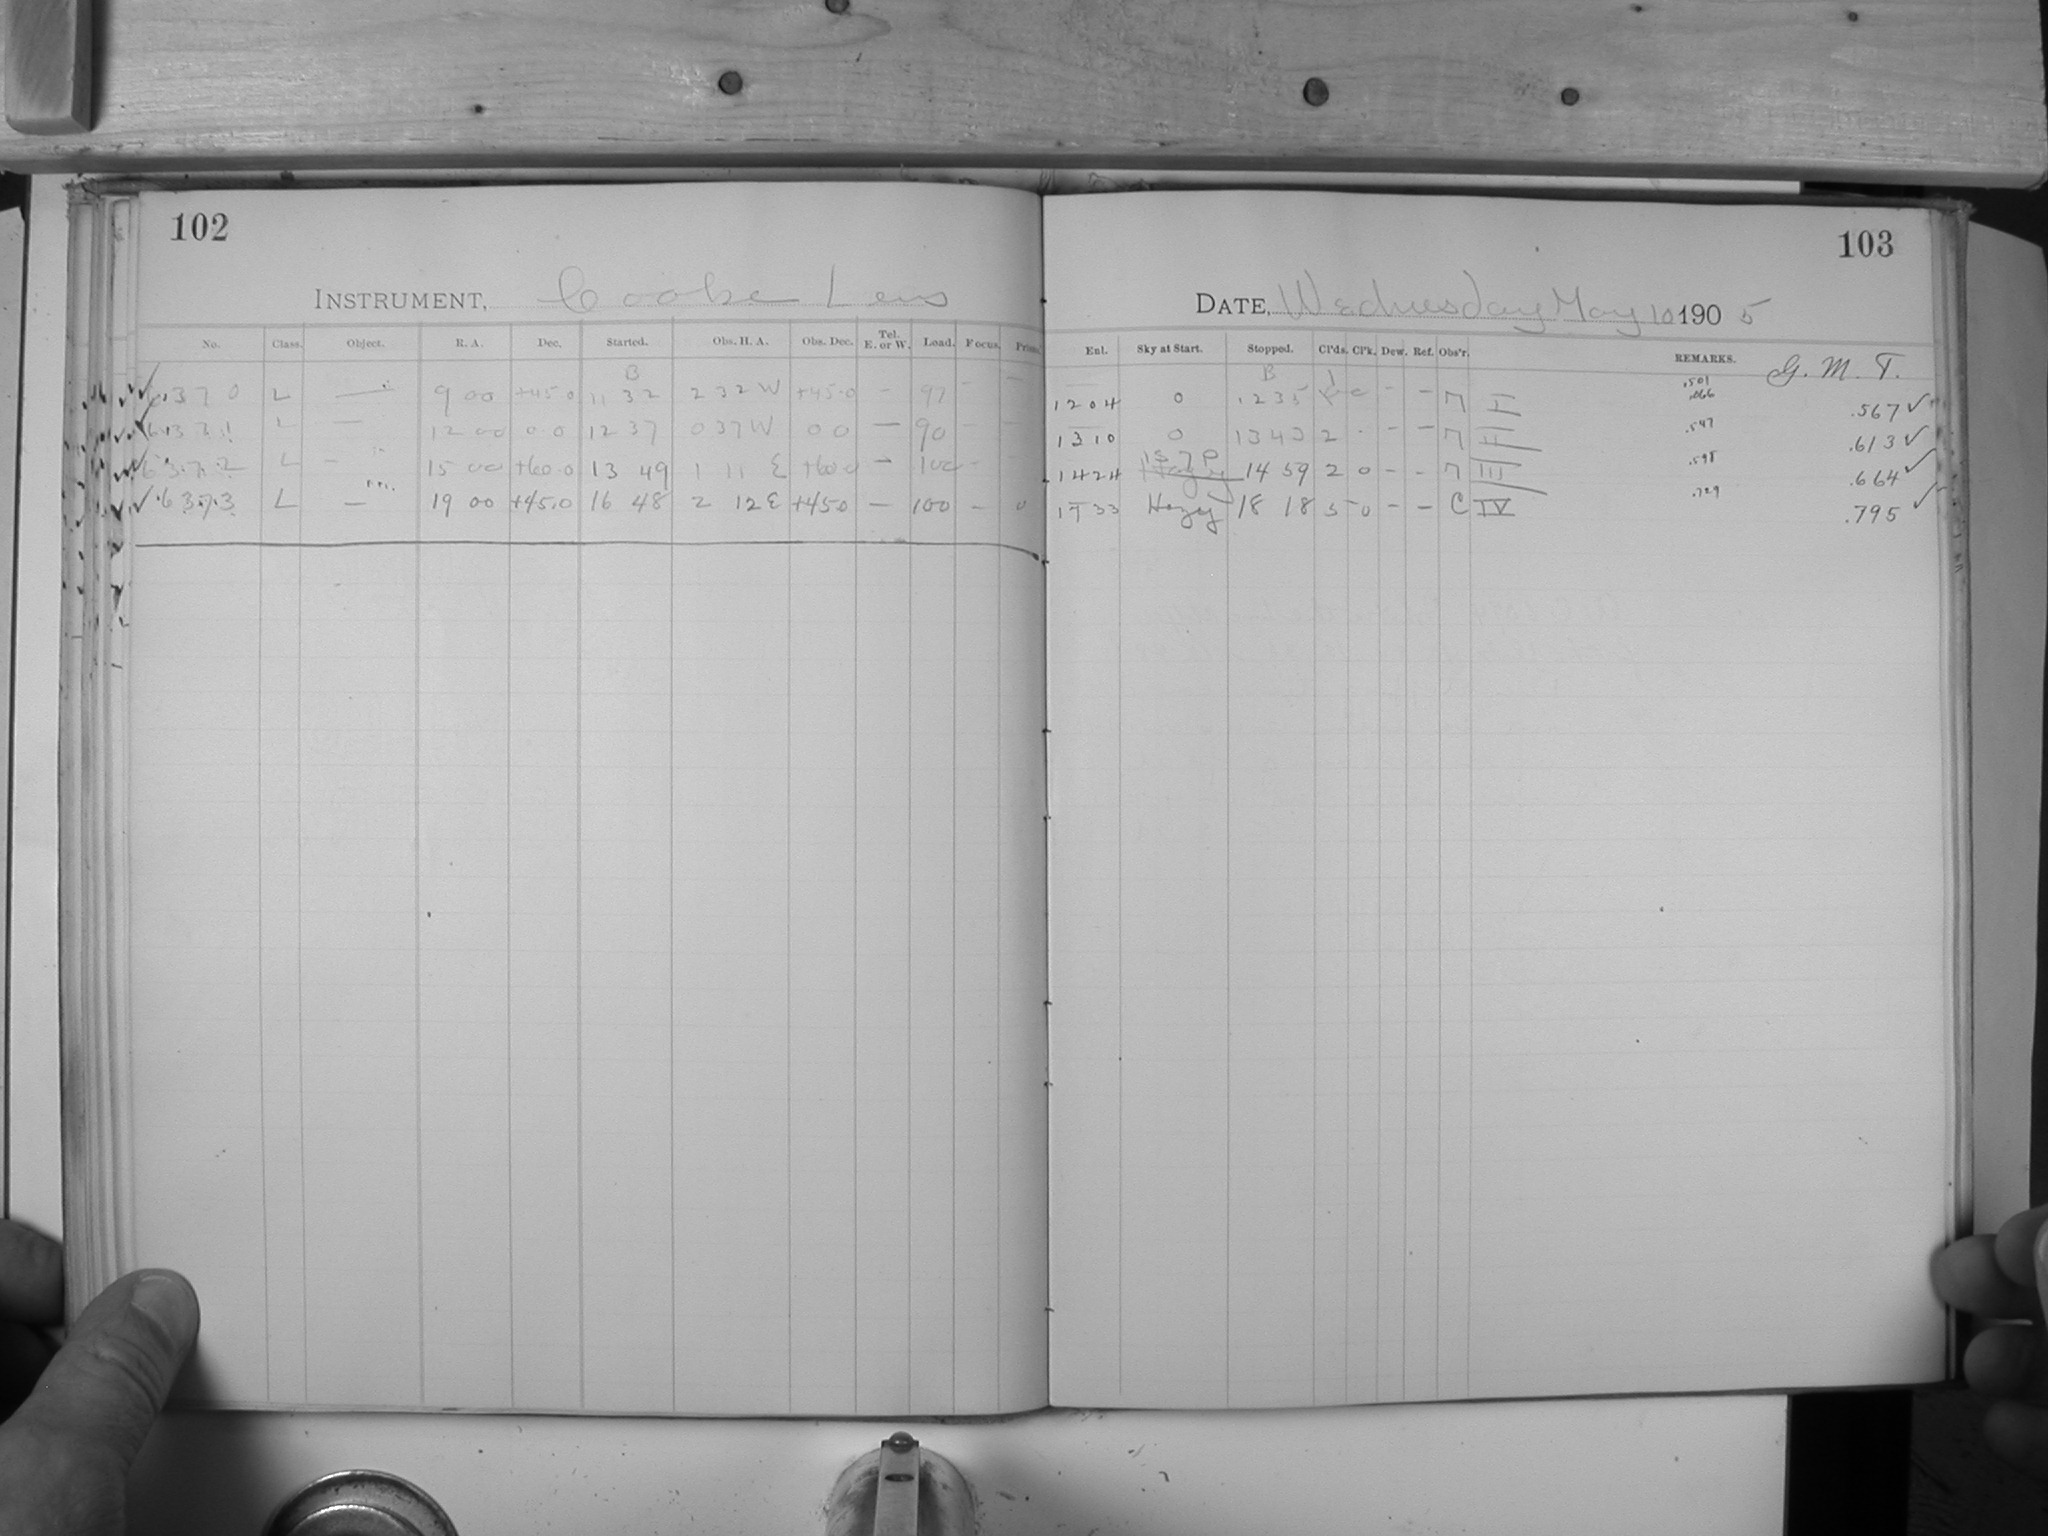 102
INSTRUMENT, Cooke Lens
No. Class. Object. R. A. Dec. Started. Obs. H. A. Obs. Dec. Tel. E. or W. Load. Focus.
B
6370 L — 9 00 +45.0 11 32 2 32 W +45.0 — 97 –
6371 L — 12 00 0.0 12 37 0 37 W 0 0 — 90 –
6372 L – 15 00 +60.0 13 49 1 11 E +60.0 – 100 –
6373 L — 19 00 +45.0 16 48 2 12 E +45.0 — 100 – 0
103
DATE, Wednesday May 10 1905
Enl. Sky at Start. Stopped. Cl'ds. Cl'k. Dew. Ref. Obs'r. REMARKS. G. M. T.
B 1 .501
.066
1204 0 1235 – – I .567 ✓
1310 0 1340 2 – – II .547 .613 ✓
1424 14 59 2 0 – – III .598 .664 ✓
1733 Hazy 18 18 5 0 – – C IV .729 .795 ✓